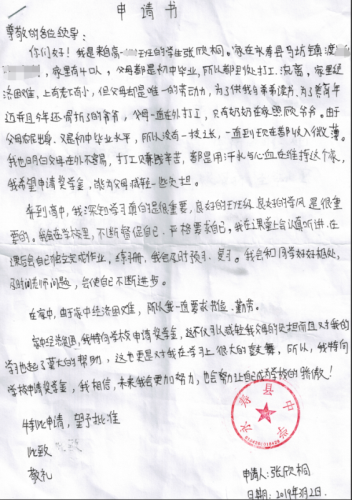 申请书
尊敬的各位领导：
你们好！我是来自高一 班的学生张欣桐。家在永寿县马坊镇
，家里有4口人，父母都是初中毕业，所以都到处打工、流离。家里经
济困难，上有老下有小，但父母却是唯一的劳动力，为了供我与弟弟读书，为了赡养年
迈并且今年还骨折的爷爷，父母一直在外打工，只有奶奶在家照顾爷爷。由于
父母农民出身，又是初中毕业水平，所以没有一技之长，一直到现在都收入微薄。
我也明白父母在外不容易，打工又赚钱辛苦，都是用汗水与心血在维持这个家，
我希望申请奖学金，能为父母减轻一些负担。
来到高中，我深知学习真的是很重要，良好的班级，良好的学风是很重
要的。我会在学校里，不断督促自己，严格要求自己。我在课堂上会认真听讲，在
课后会自己独立完成作业，练习册，我也及时预习、复习。我会和同学好好相处，
及时向老师问题，会使自己不断进步。
在家中，由于家中经济困难，所以我一直要求节俭、勤劳。
家中经济拮据，我特向学校申请奖学金，这不仅可以减轻我父母的负担而且对我的
学习也起了重大的帮助，这也更是对我在学习上很大的鼓舞。所以，我特向
学校申请奖学金，我相信，未来我会更加努力，也会努力让自己成为学校的骄傲！
特此申请，望予批准
此致
敬礼
永寿县中学
申请人：张欣桐
日期：2019年3月2日